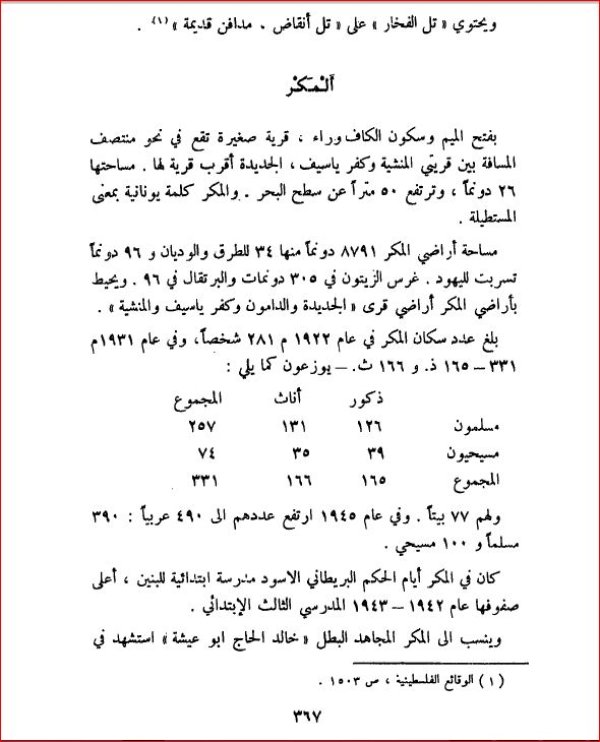 ويحتوي « تل الفخار » على « تل أنقاض . مدافن قديمة » (١) .
اَلْمَكْر
بفتح الميم وسكون الكاف وراء ، قرية صغيرة تقع في نحو منتصف
المسافة بين قريتي المنشية وكفر ياسيف ، الجديدة أقرب قرية لها . مساحتها
٢٦ دونماً ، وترتفع ٥٠ متراً عن سطح البحر . والمكر كلمة يونانية بمعنى
المستطيلة .
مساحة أراضي المكر ٨٧٩١ دونماً منها ٣٤ للطرق والوديان و ٩٦ دونماً
تسربت لليهود . غرس الزيتون في ٣٠٥ دونمات والبرتقال في ٩٦ . ويحيط
بأراضي المكر أراضي قرى « الجديدة والدامون وكفر ياسيف والمنشية » .
بلغ عدد سكان المكر في عام ١٩٢٢ م ٢٨١ شخصاً، وفي عام ١٩٣١م
٣٣١ – ١٦٥ ذ. و ١٦٦ ث. – يوزعون كما يلي :
ذكور أناث المجموع
مسلمون ١٢٦ ١٣١ ٢٥٧
مسيحيون ٣٩ ٣٥ ٧٤
المجموع ١٦٥ ١٦٦ ٣٣١
ولهم ٧٧ بيتاً . وفي عام ١٩٤٥ ارتفع عددهم الى ٤٩٠ عربياً : ٣٩٠
مسلماً و ١٠٠ مسيحي .
كان في المكر أيام الحكم البريطاني الاسود مدرسة ابتدائية للبنين ، أعلى
صفوفها عام ١٩٤٢ – ١٩٤٣ المدرسي الثالث الإبتدائي .
وينسب الى المكر المجاهد البطل « خالد الحاج ابو عيشة » استشهد في
(١) الوقائع الفلسطينية ، ص ١٥٠٣ .
٣٦٧